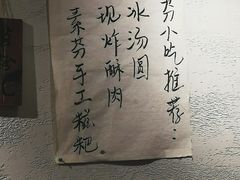 芬小吃推荐：
冰汤圆
现炸酥肉
素芬手工糍粑